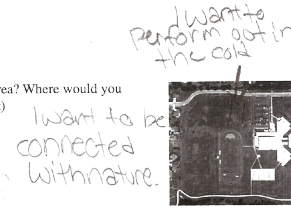 I want to
perform out in
the cold
rea? Where would you
I want to be
connected
with nature.